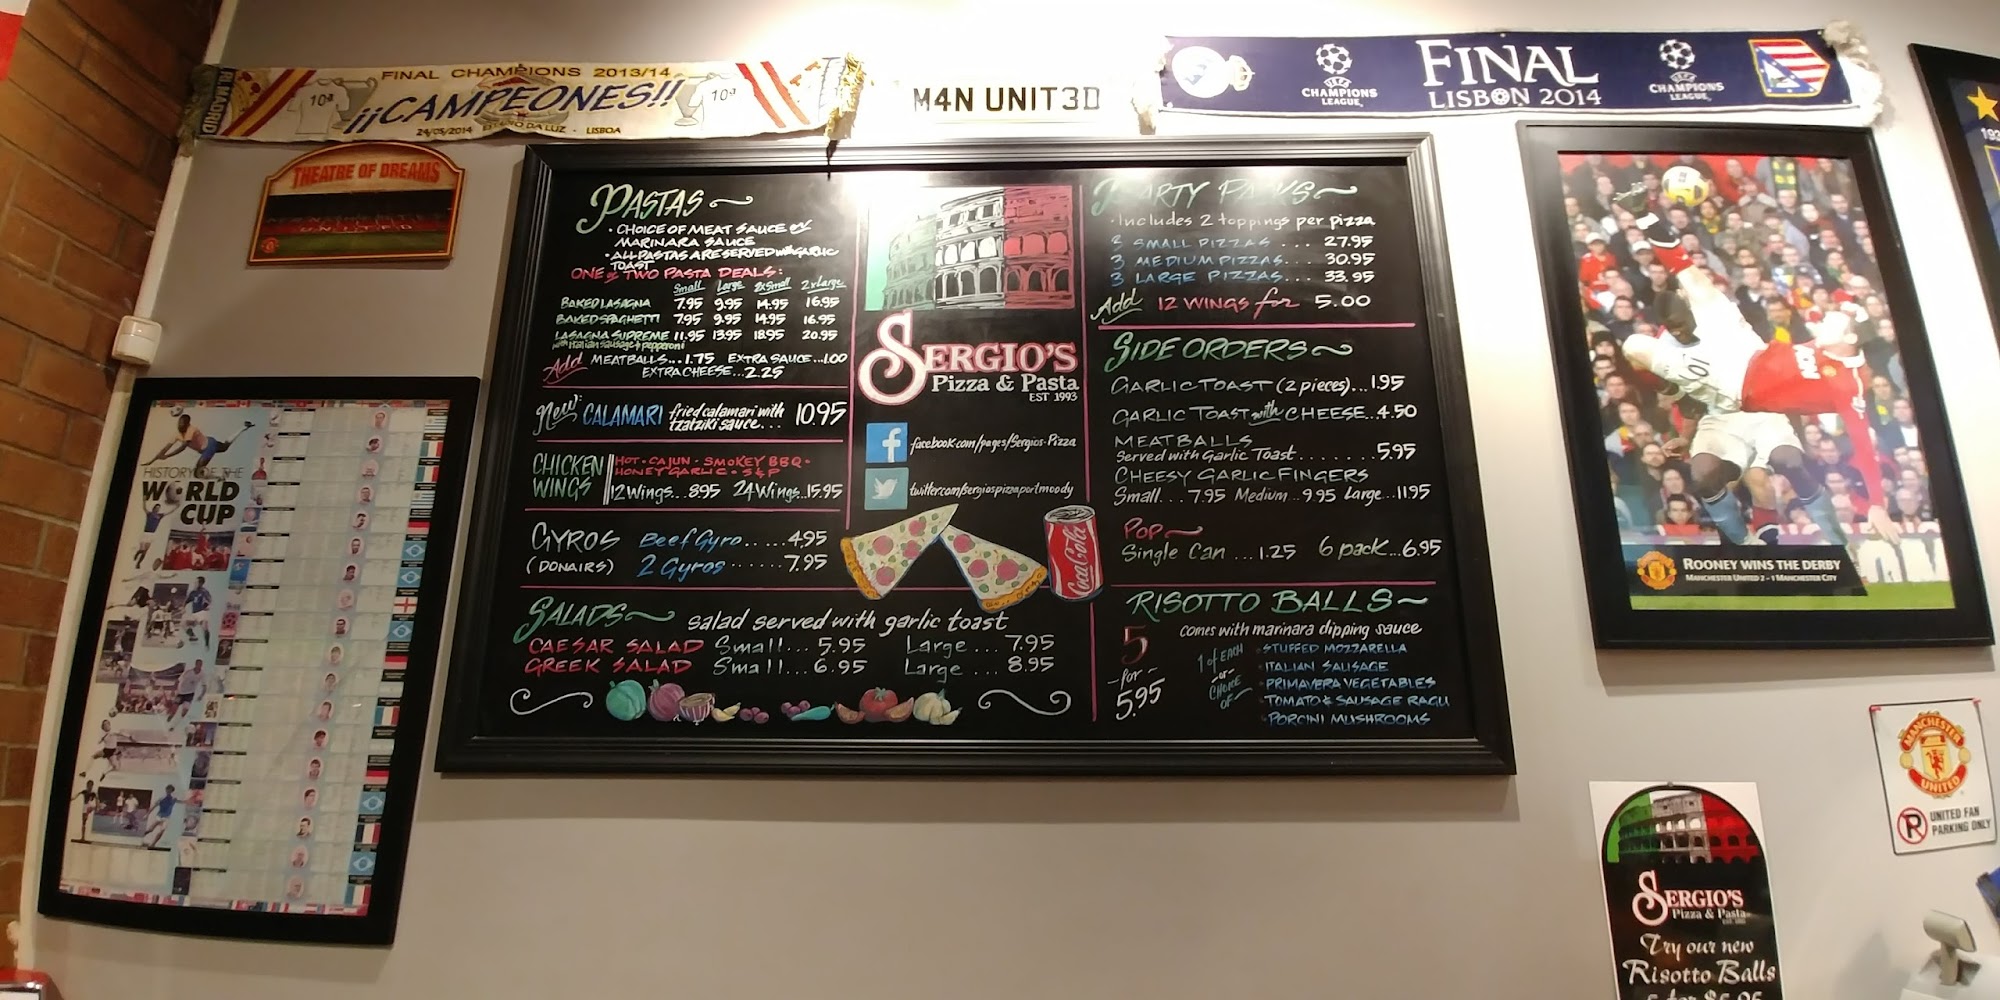 FINAL CHAMPIONS 2013/14
10ª ¡¡CAMPEONES!! 10ª
24/05/2014 ESTADIO DA LUZ - LISBOA
R.MADRID
M4N UNIT3D
UEFA CHAMPIONS LEAGUE
FINAL
LISBON 2014
UEFA CHAMPIONS LEAGUE
THEATRE OF DREAMS
UNITED
HISTORY OF THE
WORLD
CUP
PASTAS
• CHOICE OF MEAT SAUCE or
MARINARA SAUCE
• ALL PASTAS ARE SERVED with GARLIC
TOAST
ONE or TWO PASTA DEALS:
Small Large 2xSmall 2xLarge
BAKED LASAGNA 7.95 9.95 14.95 16.95
BAKED SPAGHETTI 7.95 9.95 14.95 16.95
LASAGNA SUPREME 11.95 13.95 18.95 20.95
with Italian sausage & pepperoni
Add MEATBALLS...1.75 EXTRA SAUCE...1.00
EXTRA CHEESE...2.25
New: CALAMARI fried calamari with
tzatziki sauce... 10.95
CHICKEN
WINGS
HOT • CAJUN • SMOKEY BBQ •
HONEY GARLIC • S & P
12 Wings...8.95 24 Wings...15.95
GYROS Beef Gyro.....4.95
(DONAIRS) 2 Gyros......7.95
SALADS salad served with garlic toast
CAESAR SALAD Small... 5.95 Large... 7.95
GREEK SALAD Small... 6.95 Large... 8.95
SERGIO'S
Pizza & Pasta
EST 1993
facebook.com/pages/Sergios-Pizza
twitter.com/sergiospizzaportmoody
Coca-Cola
PARTY PACKS
• Includes 2 toppings per pizza
3 SMALL PIZZAS ... 27.95
3 MEDIUM PIZZAS... 30.95
3 LARGE PIZZAS... 33.95
Add 12 WINGS for 5.00
SIDE ORDERS
GARLIC TOAST (2 pieces)...1.95
GARLIC TOAST with CHEESE..4.50
MEATBALLS
Served with Garlic Toast.......5.95
CHEESY GARLIC FINGERS
Small...7.95 Medium...9.95 Large...11.95
POP
Single Can ...1.25 6 pack...6.95
RISOTTO BALLS
comes with marinara dipping sauce
5
-for-
5.95
1 of EACH
-or-
CHOICE
OF-
• STUFFED MOZZARELLA
• ITALIAN SAUSAGE
• PRIMAVERA VEGETABLES
• TOMATO & SAUSAGE RAGU
• PORCINI MUSHROOMS
ROONEY WINS THE DERBY
MANCHESTER UNITED 2 - 1 MANCHESTER CITY
MANCHESTER
UNITED
P UNITED FAN
PARKING ONLY
SERGIO'S
Pizza & Pasta
Try our new
Risotto Balls
5 for $5.95